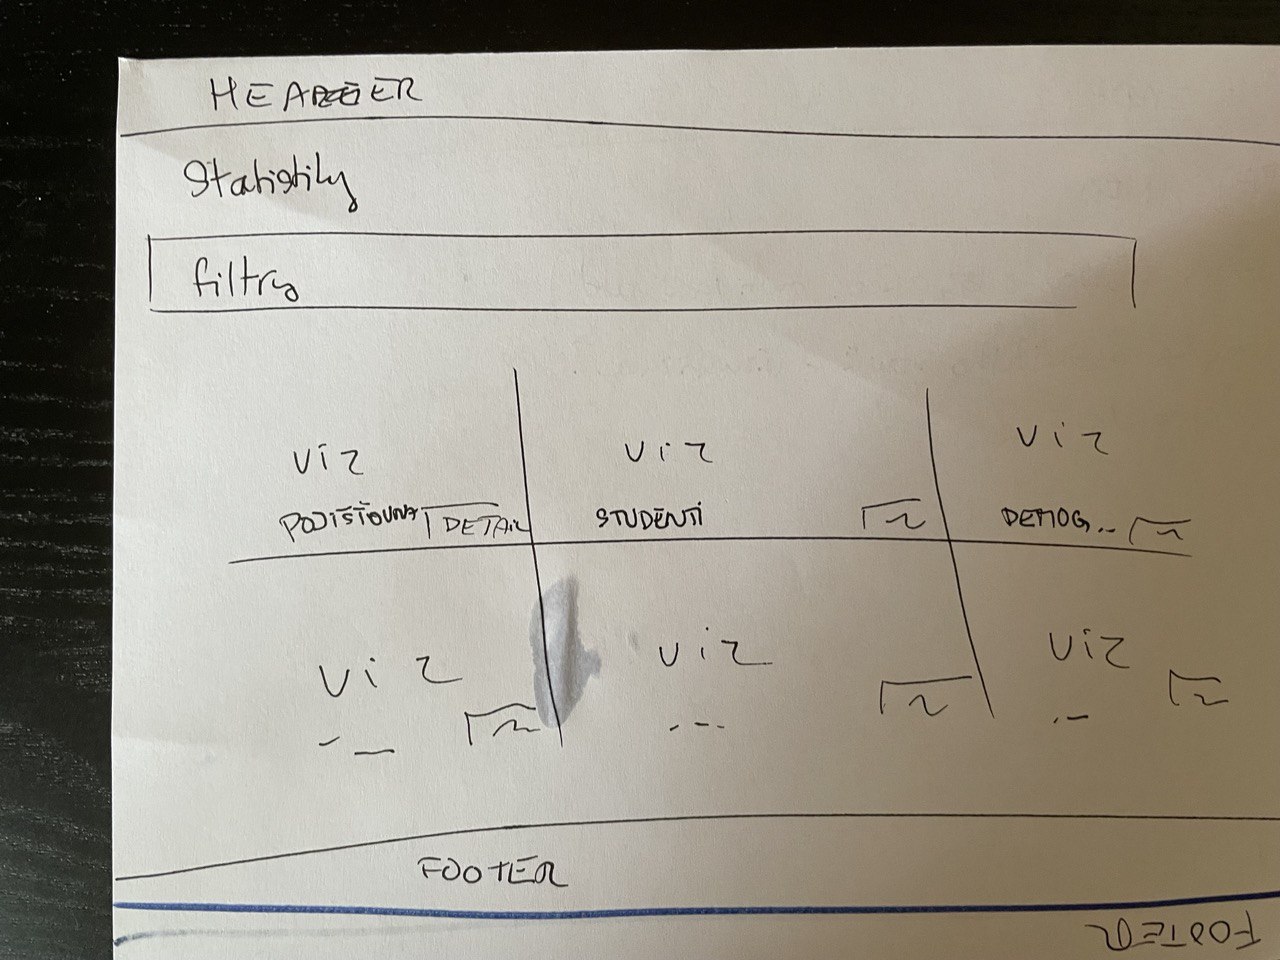 HEADER
Statistiky
filtry
viz viz viz
POJIŠŤOVNY DETAIL STUDENTI DEMOG..
viz viz viz
FOOTER
FOOTER